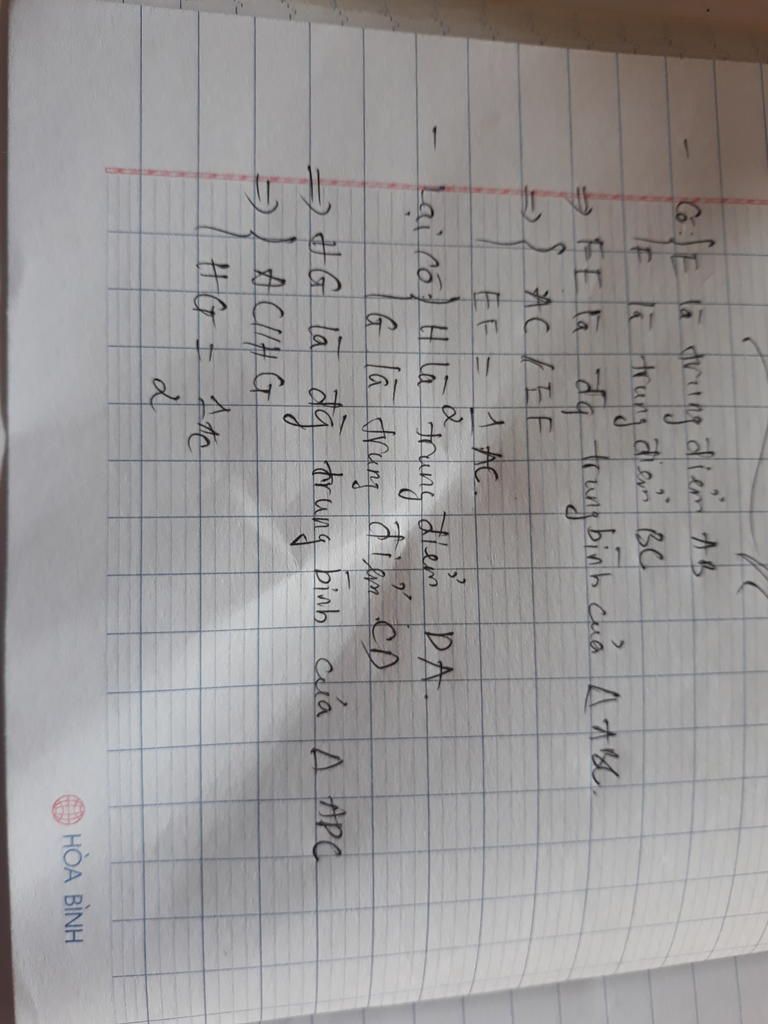 - Có: { E là trung điểm AB
F là trung điểm BC
⇒ FE là đg trung bình của Δ ABC.
⇒ { AC // EF
EF = 1/2 AC.
- Lại có: { H là trung điểm DA.
G là trung điểm CD
⇒ HG là đg trung bình của Δ ADC
⇒ { AC // HG
HG = 1/2 AC
HÒA BÌNH